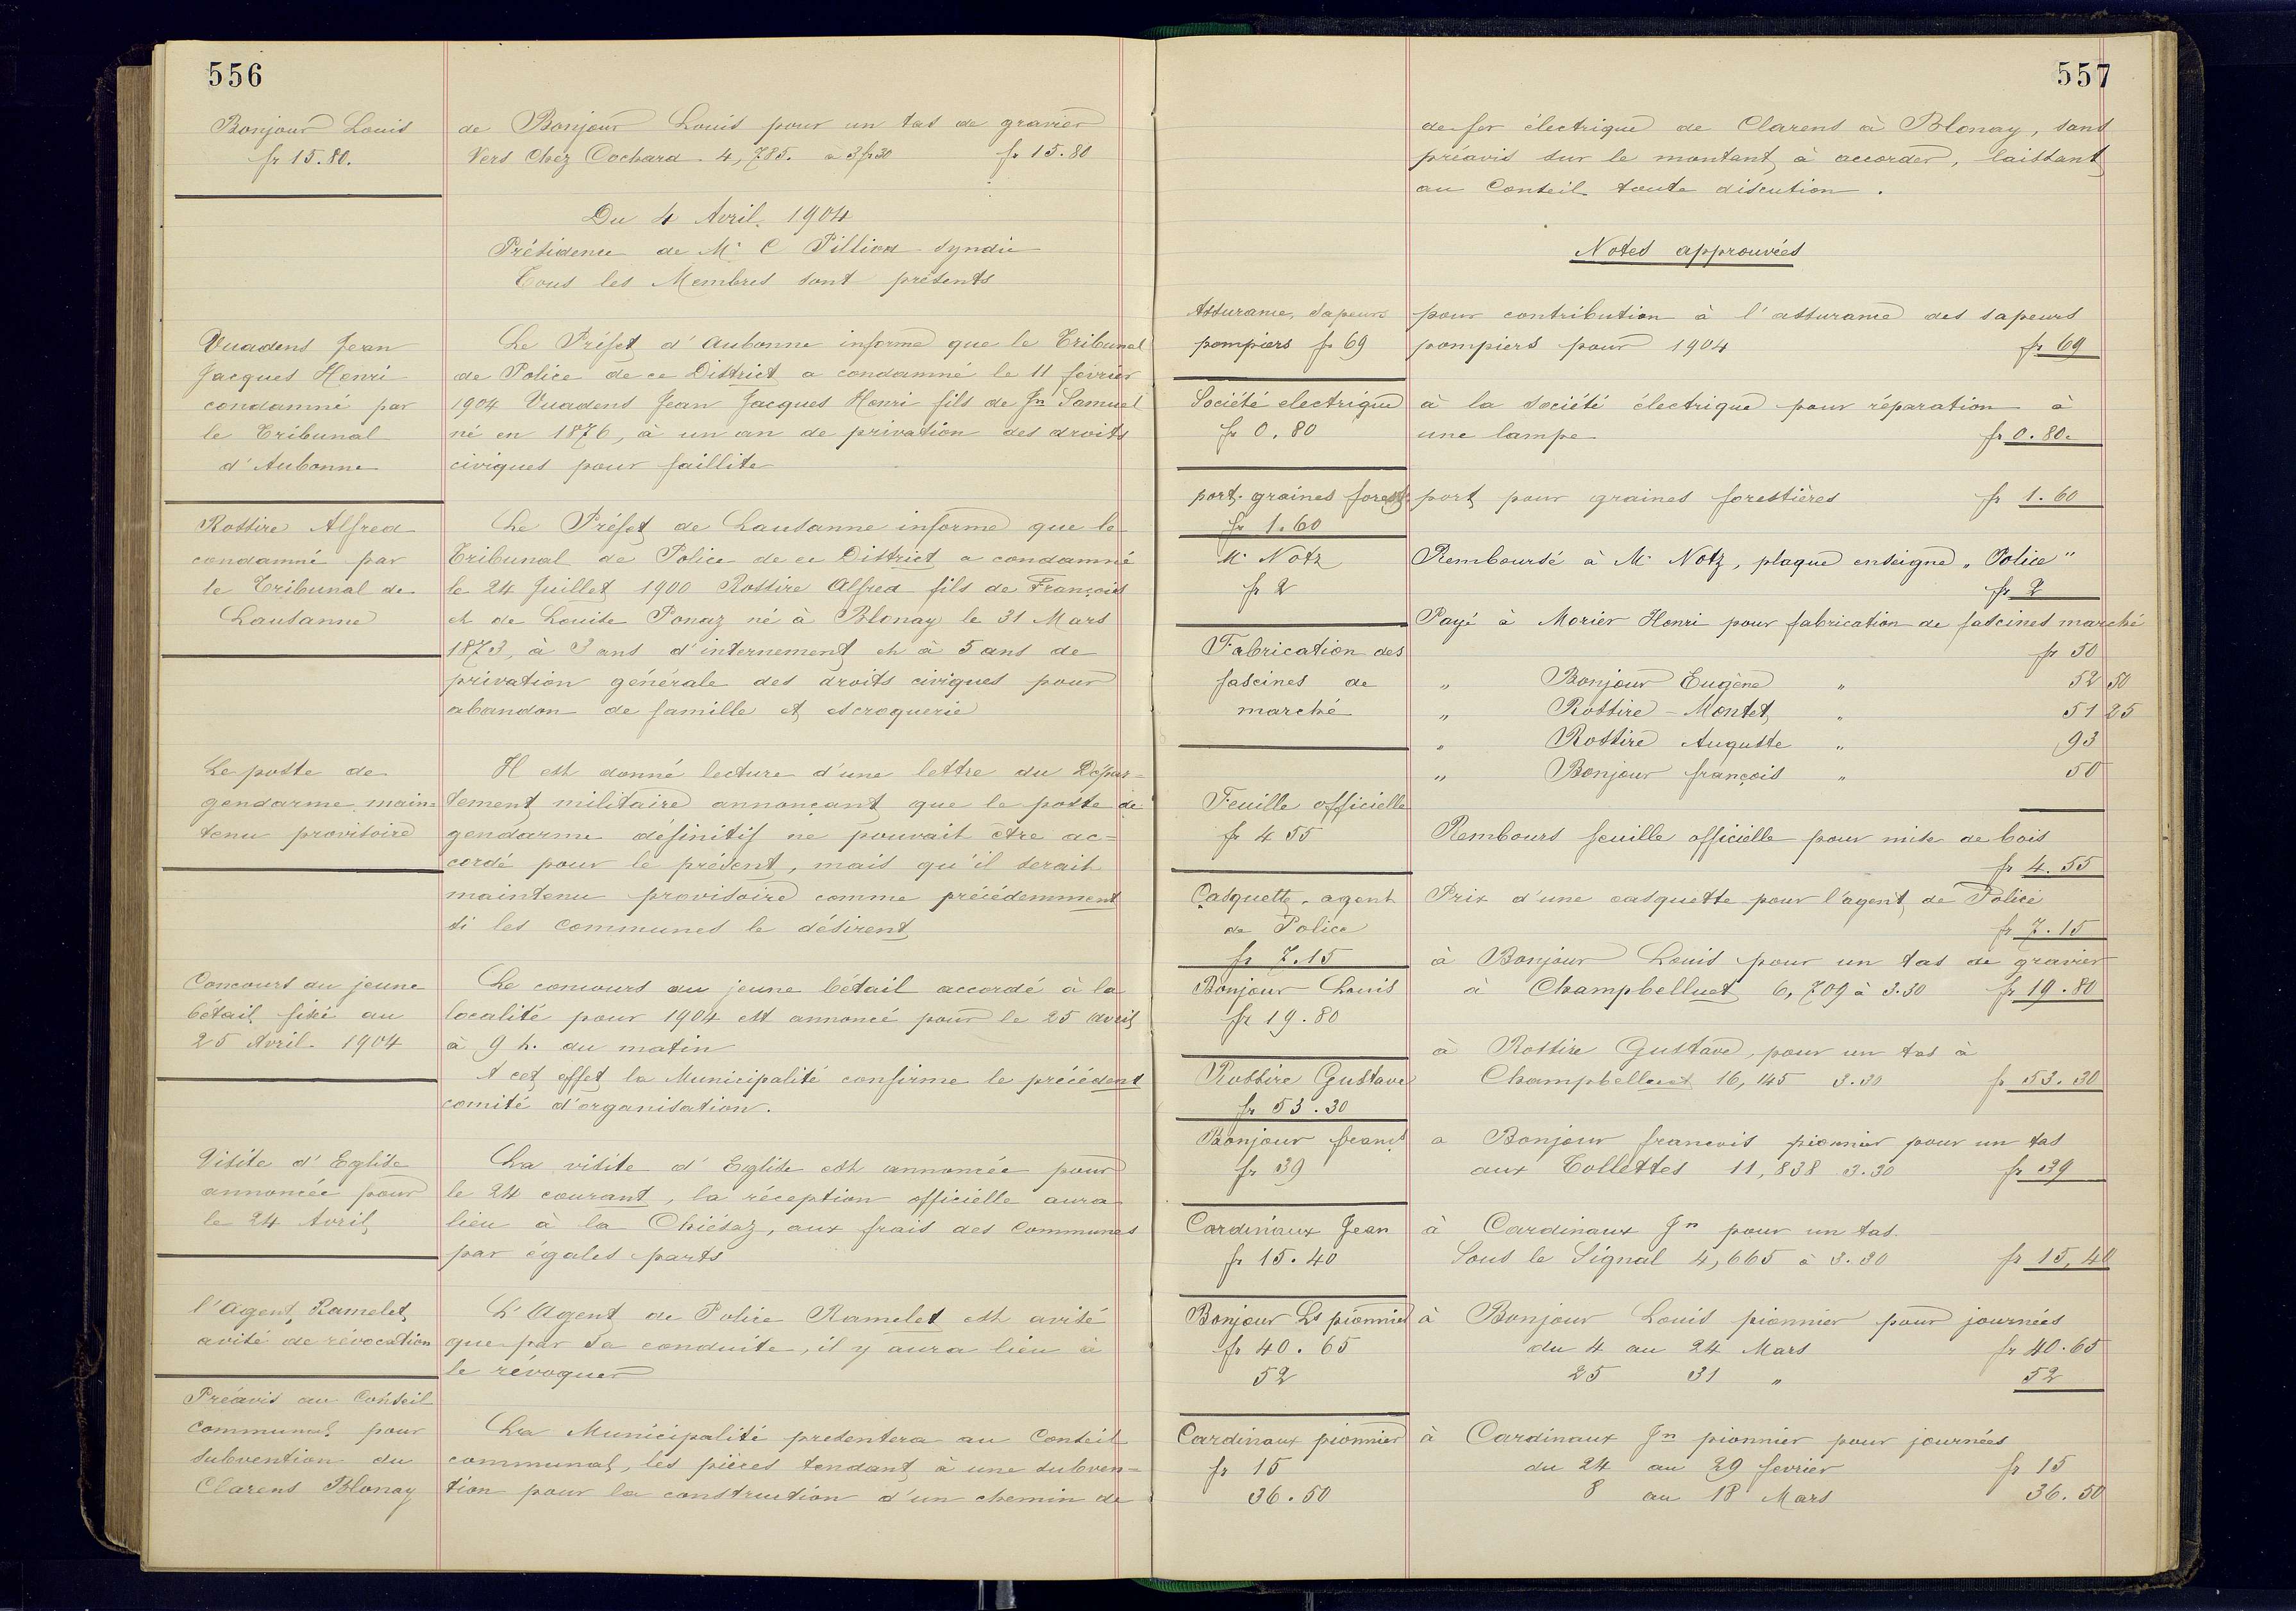 556
Bonjour Louis
fr 15.80.
de Bonjour Louis pour un tas de gravier
Vers Chez Cochard 4,785. à 3fr30 fr 15.80
Du 4 Avril 1904
Présidence de Mr C Pilliod syndic
Tous les Membres sont présents
Vuadens Jean
Jacques Henri
condamné par
le Tribunal
d'Aubonne
Le Préfet d'Aubonne informe que le Tribunal
de Police de ce District a condamné le 11 février
1904 Vuadens Jean Jacques Henri fils de Jn Samuel
né en 1876, à un an de privation des droits
civiques pour faillite
Rossire Alfred
condamné par
le Tribunal de
Lausanne
Le Préfet de Lausanne informe que le
Tribunal de Police de ce District a condamné
le 24 Juillet 1900 Rossire Alfred fils de François
et de Louise Ponaz né à Blonay le 31 Mars
1873, à 3 ans d'internement et à 5 ans de
privation générale des droits civiques pour
abandon de famille et escroquerie
Le poste de
gendarme main=
tenu provisoire
Il est donné lecture d'une lettre du Dépar=
tement militaire annonçant que le poste de
gendarme définitif ne pouvait être ac=
cordé pour le présent, mais qu'il serait
maintenu provisoire comme précédemment
si les communes le désirent
Concours au jeune
bétail fixé au
25 Avril 1904
Le concours au jeune bétail accordé à la
localité pour 1904 est annoncé pour le 25 avril
à 9 h. du matin
A cet effet la Municipalité confirme le précédent
comité d'organisation.
Visite d'Eglise
annoncée pour
le 24 Avril
La visite d'Eglise est annoncée pour
le 24 courant, la réception officielle aura
lieu à la Chiésaz, aux frais des communes
par égales parts
l'Agent Ramelet
avisé de révocation
L'Agent de Police Ramelet est avisé
que par sa conduite, il y aura lieu à
le révoquer
Préavis au Conseil
communal pour
subvention du
Clarens Blonay
La Municipalité presentera au Conseil
communal, les pièces tendant à une subven=
tion pour la construction d'un chemin de
557
de fer électrique de Clarens à Blonay, sans
préavis sur le montant à accorder, laissant
au Conseil toute discution.
Notes approuvées
Assurance, sapeurs
pompiers fr 69
pour contribution à l'assurance des sapeurs
pompiers pour 1904 fr 69
Société electrique
fr 0.80
à la société électrique pour réparation à
une lampe fr 0.80.
port. graines forest.
fr 1.60
port pour graines forestières fr 1.60
Mr Notz
fr 2
Remboursé à Mr Notz, plaque enseigne „Police"
fr 2
Fabrication des
fascines de
marché
Payé à Morier Henri pour fabrication de fascines marché
fr 50
„ Bonjour Eugène „ 52 50
„ Rossire-Montet „ 51 25
„ Rossire Auguste „ 93
„ Bonjour françois „ 50
Feuille officielle
fr 4 55
Rembours feuille officielle pour mise de bois
fr 4.55
Casquette. agent
de Police
fr 7.15
Prix d'une casquette pour l'agent de Police
fr 7.15
Bonjour Louis
fr 19.80
à Bonjour Louis pour un tas de gravier
à Champbelluet 6,709 à 3.30 fr 19.80
Rossire Gustave
fr 53.30
à Rossire Gustave, pour un tas à
Champbelluet 16,145 3.30 fr 53.30
Bonjour franç
fr 39
a Bonjour francois pionnier pour un tas
aux Tollettes 11,838 3.30 fr 39
Cardinaux Jean
fr 15.40
à Cardinaux Jn pour un tas.
Sous le Signal 4,665 à 3.30 fr 15,40
Bonjour Ls pionnier
fr 40.65
52
à Bonjour Louis pionnier pour journées
du 4 au 24 Mars fr 40.65
25 31 „ 52
Cardinaux pionnier
fr 15
36.50
à Cardinaux Jn pionnier pour journées
du 24 au 29 fevrier fr 15
8 au 18 Mars 36.50